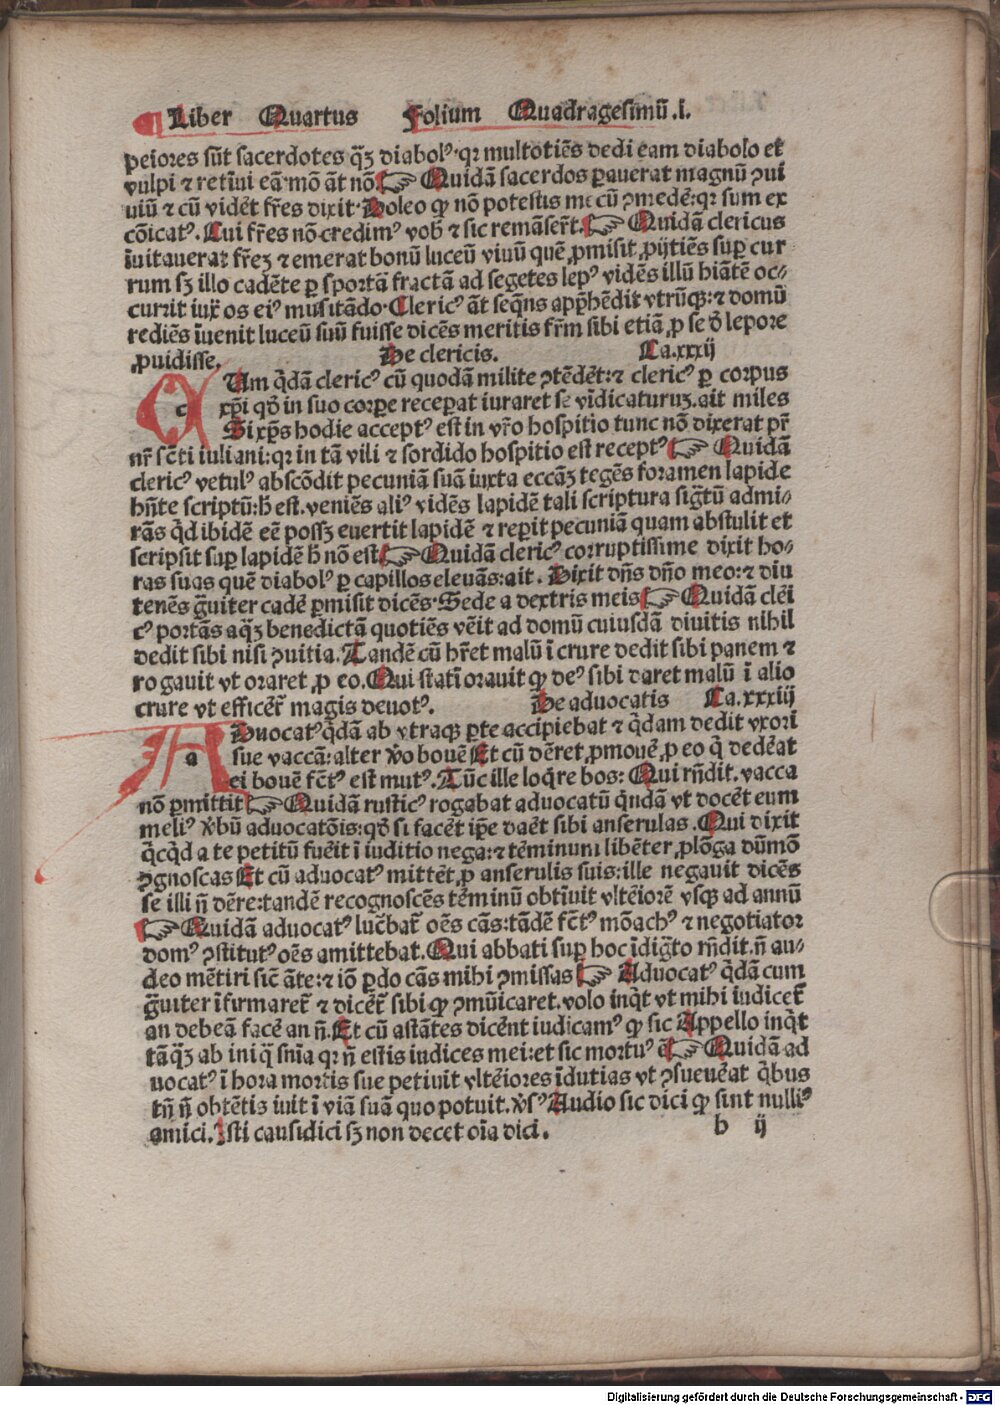 Liber Quartus Folium Quadragesimū .i.
peiores sūt sacerdotes q̄ȝ diabolꝰ·qr multotiēs dedi eam diabolo et
vulpi ⁊ retīui eā·mō āt nō☞ Quidā sacerdos ꝑauerat magnū ꝯui
uiū ⁊ cū vidēt fr̄es dixit·Doleo ꝙ nō potestis mecū ꝯmedē:qr sum ex
cōicatꝰ. Cui fr̄es nō credimꝰ vob̄ ⁊ sic remāser̄t.☞ Quidā clericus
īuitauerat fr̄eȝ ⁊ emerat bonū luceū viuū quē ꝓmisit ꝓijtiēs suꝑ cur
rum sȝ illo cadēte ꝑ sportā fractā ad segetes lepꝰ vidēs illū hiātē oc⸗
currit iux̄ os eiꝰ musitādo·Clericꝰ āt seq̄ns app̄hēdit vtrūqꝫ:⁊ domū
rediēs īuenit luceū suū fuisse dicēs meritis fr̄m sibi etiā ꝓ se ⁊ đ lepore
ꝓuidisse. De clericis. Ca.xxxij
cUm q̄dā clericꝰ cū quodā milite ꝯtēdēt:⁊ clericꝰ ꝑ corpus
xp̄i qđ in suo corꝑe receꝑat iuraret se vīdicaturuȝ.ait miles
Si xp̄s hodie acceptꝰ est in vr̄o hospitio tunc nō dixerat pr̄
nr̄ sc̄ti iuliani:qr in tā vili ⁊ sordido hospitio est receptꝰ☞ Quidā
clericꝰ vetulꝰ abscōdit pecuniā suā iuxta eccāȝ tegēs foramen lapide
hn̄te scriptū:h̄ est.veniēs aliꝰ vidēs lapidē tali scriptura siḡtū admi⸗
rās q̄d ibidē eē possȝ euertit lapidē ⁊ reꝑit pecuniā quam abstulit et
scripsit suꝑ lapidē h̄ nō est☞ Quidā clericꝰ corruptissime dixit ho⸗
ras suas quē diabolꝰ ꝑ capillos eleuās:ait. Dixit dn̄s dn̄o meo:⁊ diu
tenēs g̈uiter cadē ꝑmisit dicēs·Sede a dextris meis☞ Quidā clēi
cꝰ portās aq̄ȝ benedictā quotiēs vēit ad domū cuiusdā diuitis nihil
dedit sibi nisi ꝯuitia.Tandē cū hr̄et malū ī crure dedit sibi panem ⁊
rogauit vt oraret ꝓ eo.Qui statī orauit ꝙ deꝰ sibi daret malū ī alio
crure vt efficer̄t magis deuotꝰ. De aduocatis Ca.xxxiij
aDuocatꝰ q̄dā ab vtraqꝫ ꝑte accipiebat ⁊ q̄dam dedit vxori
sue vaccā:alter v̄o bouē Et cū dēret ꝓmouē ꝓ eo q̄ dedēat
ei bouē fc̄tꝰ est mutꝰ.Tūc ille loq̄re bos: Qui rn̄dit.vacca
nō ꝑmittit☞ Quidā rusticꝰ rogabat aduocatū q̄ndā vt docēt eum
meliꝰ v̄bū aduocatōis:qđ si facēt ip̄e daēt sibi anserulas.Qui dixit
q̄cq̄d a te petitū fuēit ī iuditio nega:⁊ tēminum libēter ꝓlōga dūmō
ꝯgnoscas Et cū aduocatꝰ mittēt ꝓ anserulis suis:ille negauit dicēs
se illi n̄ dēre:tandē recognoscēs tēminū obtīuit vltēiorē vsqꝫ ad annū
☞ Quidā aduocatꝰ luc̄bat̄ oēs cās:tādē fc̄tꝰ mōachꝰ ⁊ negotiator
domꝰ ꝯstitutꝰ oēs amittebat.Qui abbati suꝑ hoc īdig̈to rn̄dit.n̄ au⸗
deo mētiri sic̄ āte:⁊ iō ꝑdo cās mihi ꝯmissas☞ Aduocatꝰ q̄dā cum
g̈uiter īfirmaret̄ ⁊ dicēt̄ sibi ꝙ ꝯmūicaret.volo inq̄t vt mihi iudicet̄
an debeā facē an n̄.Et cū astātes dicēnt iudicamꝰ ꝙ sic Appello inq̄t
tāq̄ȝ ab iniq̄ sn̄ia qr n̄ estis iudices mei:et sic mortuꝰ ē☞ Quidā ad
uocatꝰ ī hora mortis sue petiuit vltēiores īdutias vt ꝯsueuēat q̄bus
tn̄ n̄ obtētis iuit ī viā suā quo potuit.v̄sꝰ Audio sic dici ꝙ sint nulliꝰ
amici.Isti causidici sȝ non decet oīa dici.
b ij
Digitalisierung gefördert durch die Deutsche Forschungsgemeinschaft - DFG